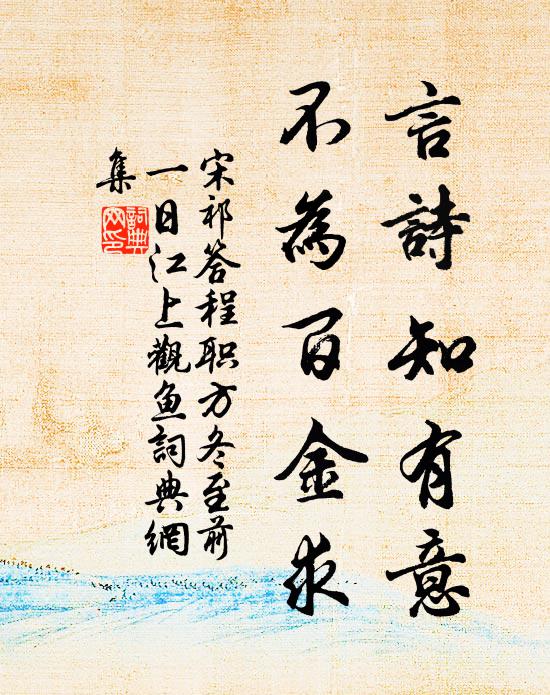 言詩知有意
不為百金求
宋祁答程职方冬至前
一日江上觀鱼詞典網
集
詞典網印